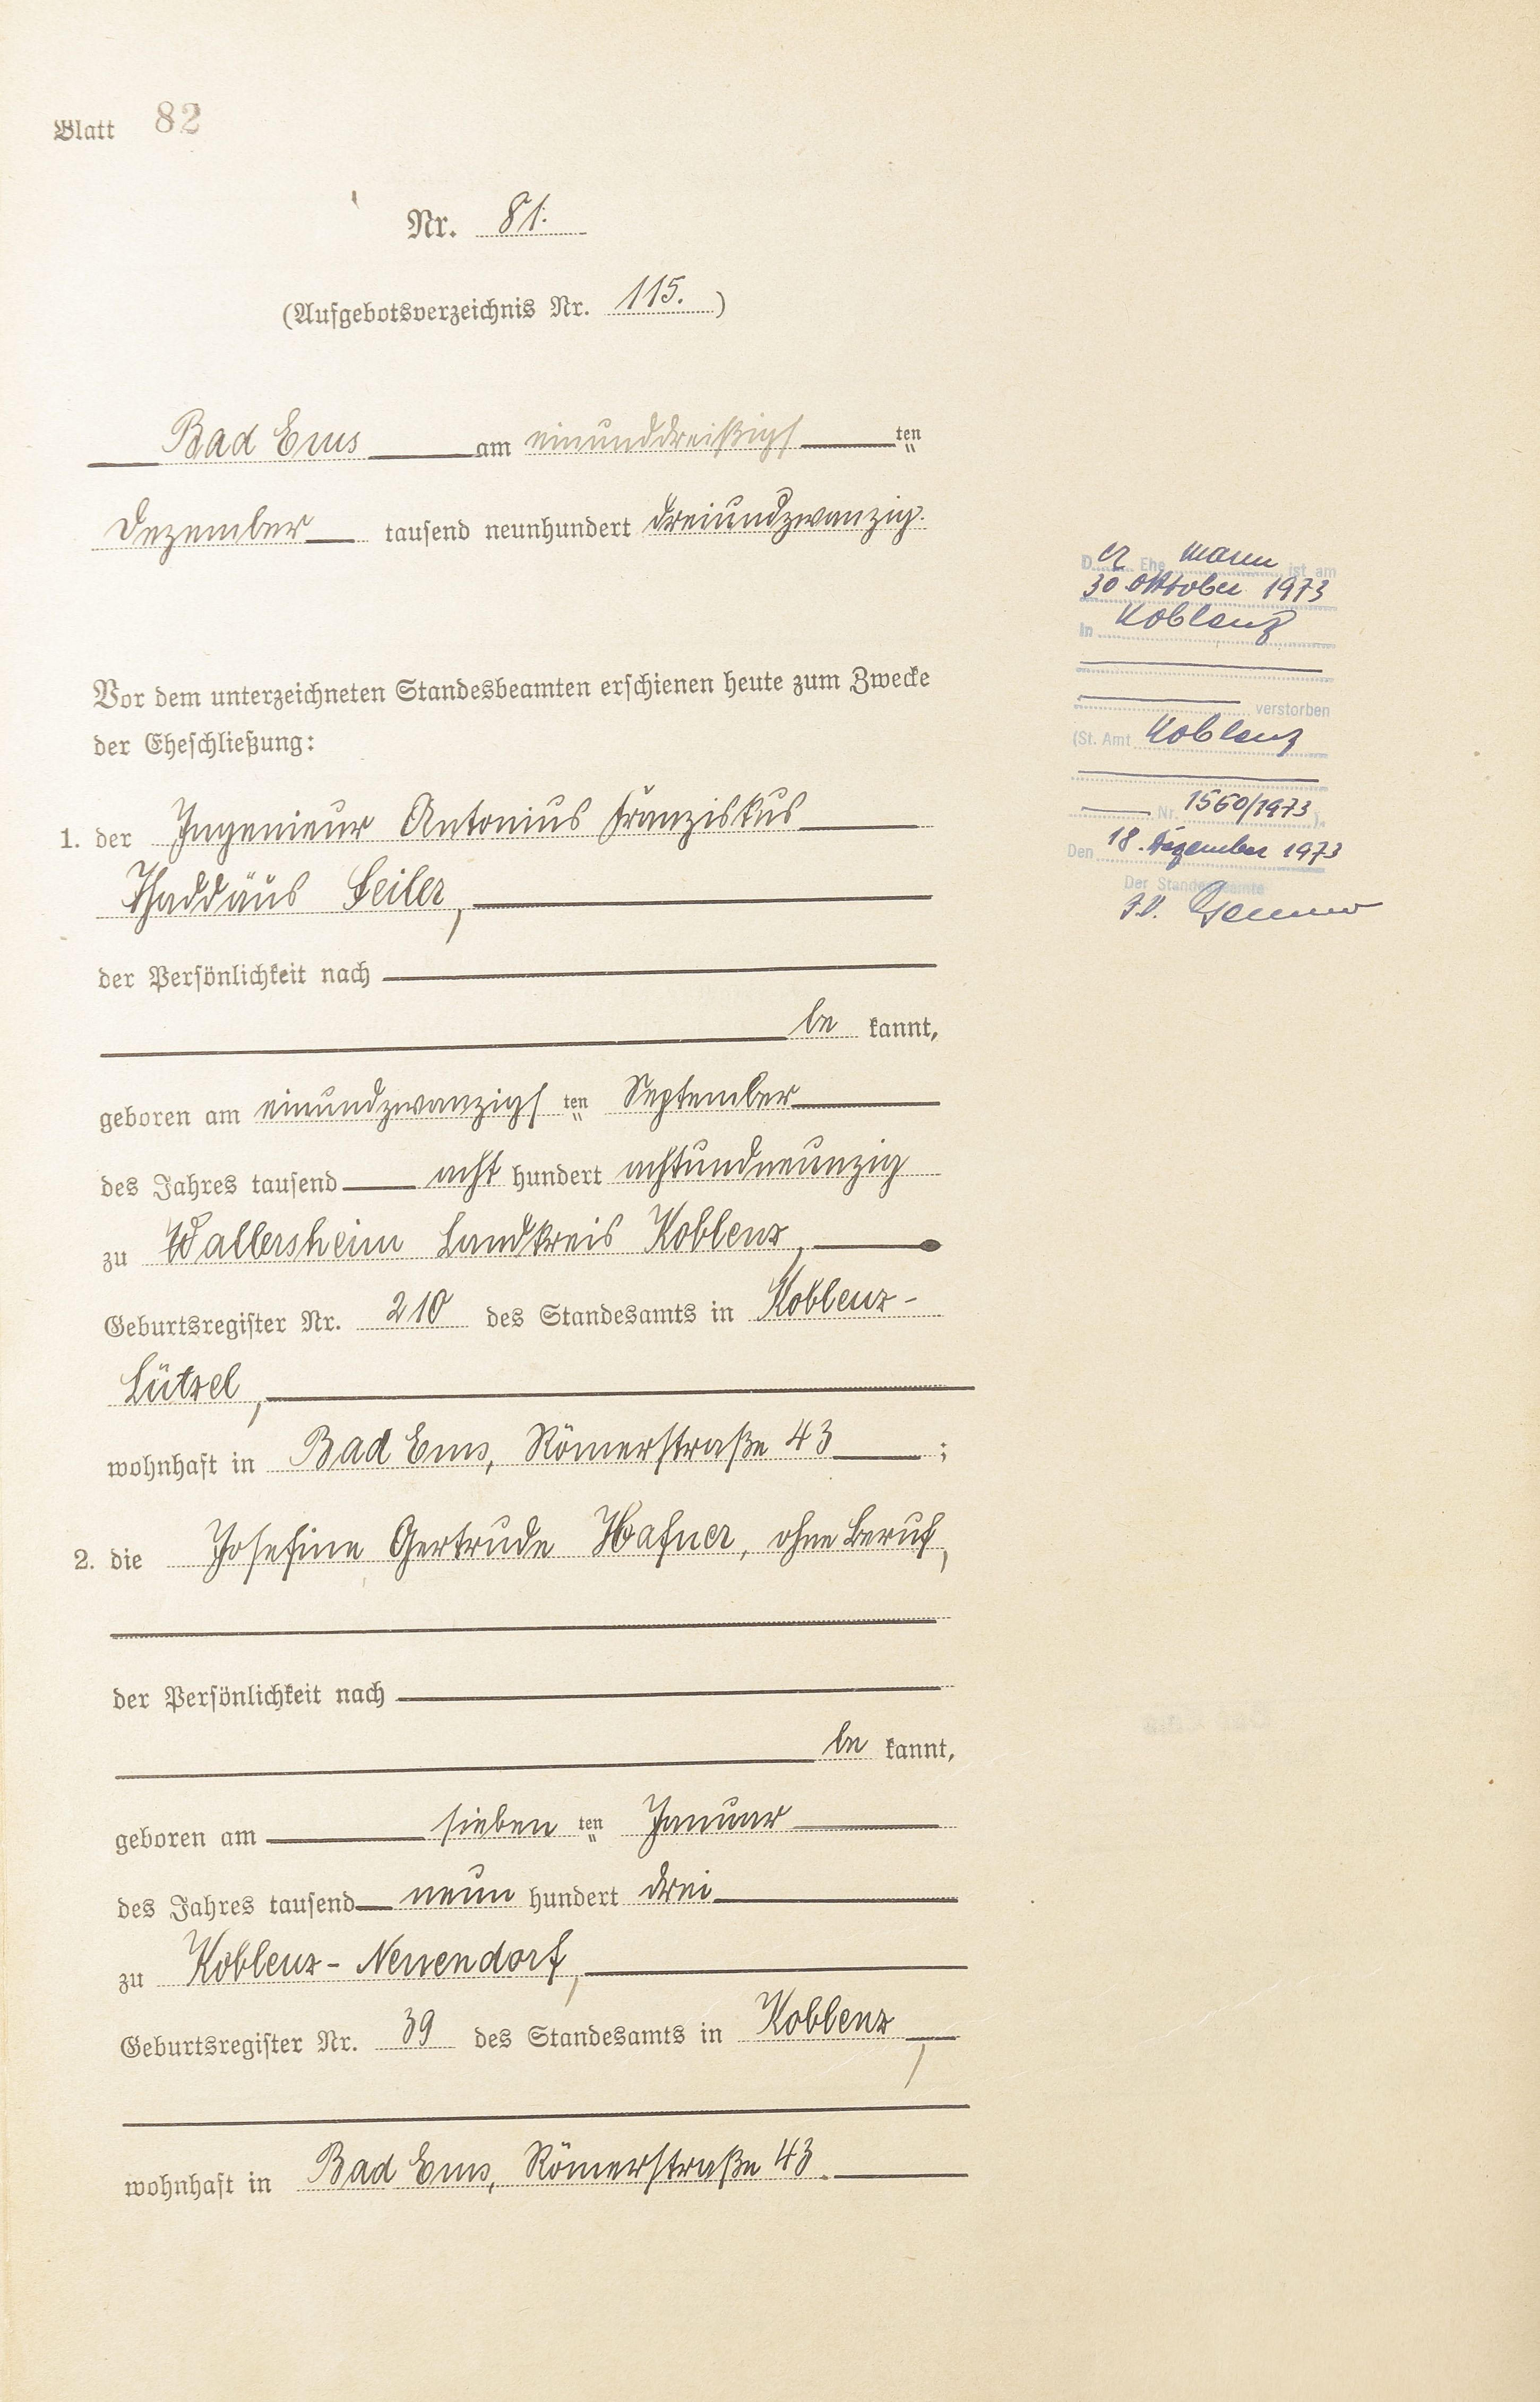 Blatt 82
Nr. 81.
(Aufgebotsverzeichnis Nr. 115.)
Bad Ems am einunddreißigsten
Dezember tausend neunhundert dreiundzwanzig.
Vor dem unterzeichneten Standesbeamten erschienen heute zum Zwecke
der Eheschließung:
1. der Ingenieur Antonius Franziskus
Thaddäus Seiler,
der Persönlichkeit nach
be kannt,
geboren am einundzwanzigsten September
des Jahres tausend acht hundert achtundneunzig
zu Wallersheim Landkreis Koblenz,
Geburtsregister Nr. 210 des Standesamts in Koblenz-
Lützel,
wohnhaft in Bad Ems, Römerstraße 43;
2. die Josefine Gertrude Hafner, ohne Beruf,
der Persönlichkeit nach
be kannt,
geboren am sieben ten Januar
des Jahres tausend neun hundert drei
zu Koblenz-Neuendorf,
Geburtsregister Nr. 39 des Standesamts in Koblenz,
wohnhaft in Bad Ems, Römerstraße 43.
Der Ehe mann ist am
30 Oktober 1973
in Koblenz
verstorben
(St. Amt Koblenz
Nr. 1560/1973).
Den 18. Dezember 1973
Der Standesbeamte
I.V.